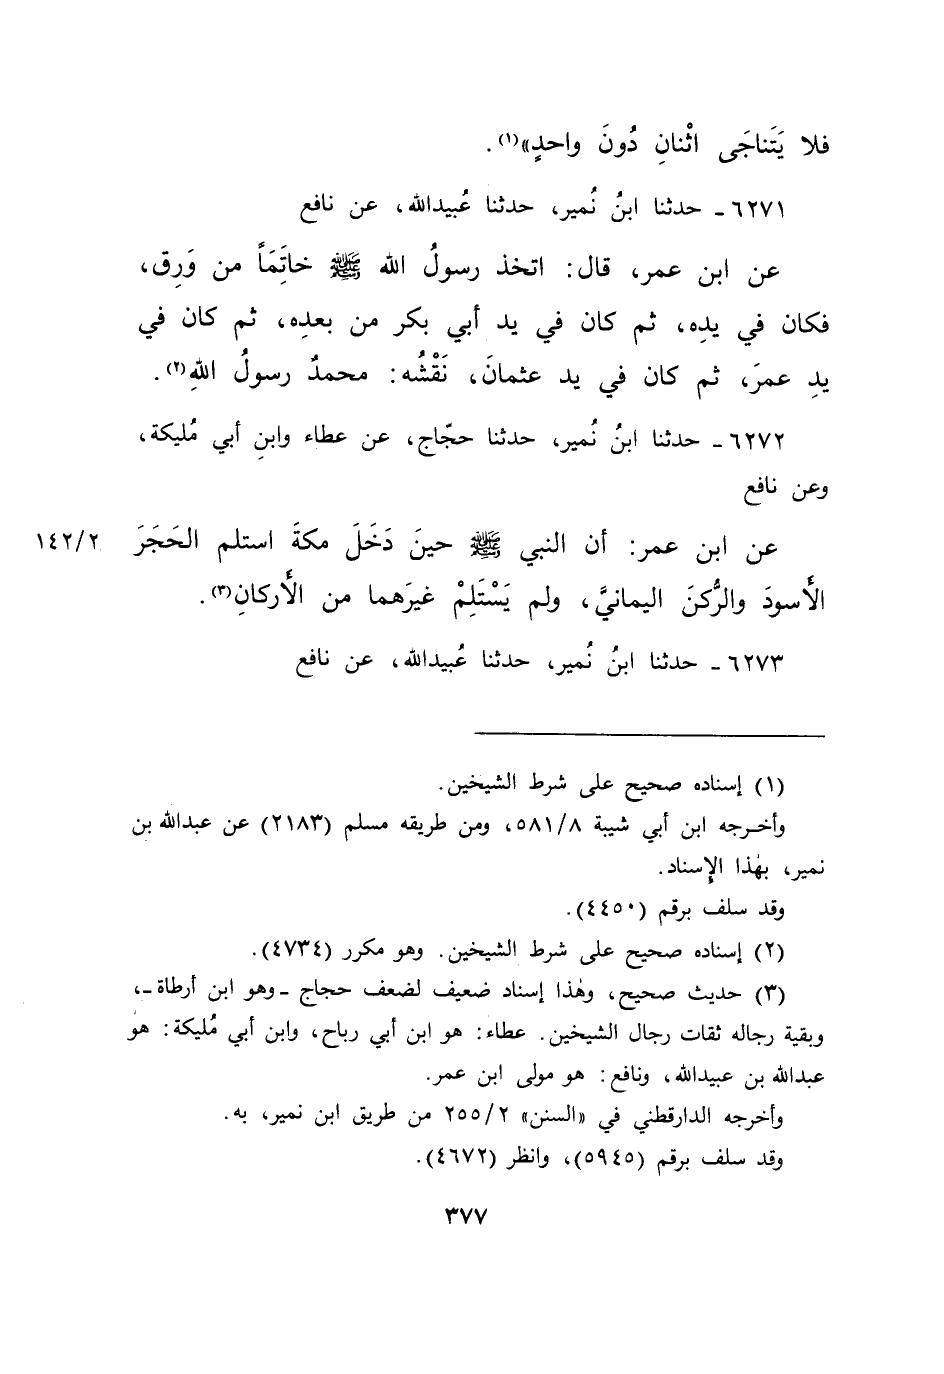 فلا يَتَناجَى اثْنانِ دُونَ واحدٍ»(١).
٦٢٧١ـ حدثنا ابنُ نُمير، حدثنا عُبيدالله، عن نافع
عن ابن عمر، قال: اتخذ رسولُ الله ﷺ خاتَِمَاً من وَرِق،
فكان في يدِه، ثم كان في يد أبي بكر من بعدِه، ثم كان في
يدِ عمرَ، ثم كان في يد عثمانَ، نَقْشُه: محمدٌ رسولُ اللهِ(٢).
٦٢٧٢ـ حدثنا ابنُ نُمير، حدثنا حجّاج، عن عطاء وابنِ أبي مُليكة،
وعن نافع
عن ابن عمر: أن النبي ﷺ حينَ دَخَلَ مكةَ استلم الحَجَرَ ١٤٢/٢
الأَسودَ والرُّكنَ اليمانيَّ، ولم يَسْتَلِمْ غيرَهما من الأَركانِ(٣).
٦٢٧٣ـ حدثنا ابنُ نُمير، حدثنا عُبيدالله، عن نافع
(١) إسناده صحيح على شرط الشيخين.
وأخرجه ابن أبي شيبة ٥٨١/٨، ومن طريقه مسلم (٢١٨٣) عن عبدالله بن
نمير، بهٰذا الإِسناد.
وقد سلف برقم (٤٤٥٠).
(٢) إسناده صحيح على شرط الشيخين. وهو مكرر (٤٧٣٤).
(٣) حديث صحيح، وهٰذا إسناد ضعيف لضعف حجاج ـ وهو ابن أرطاة ـ،
وبقية رجاله ثقات رجال الشيخين. عطاء: هو ابن أبي رباح، وابن أبي مُليكة: هو
عبدالله بن عبيدالله، ونافع: هو مولى ابن عمر.
وأخرجه الدارقطني في «السنن» ٢٥٥/٢ من طريق ابن نمير، به.
وقد سلف برقم (٥٩٤٥)، وانظر (٤٦٧٢).
٣٧٧